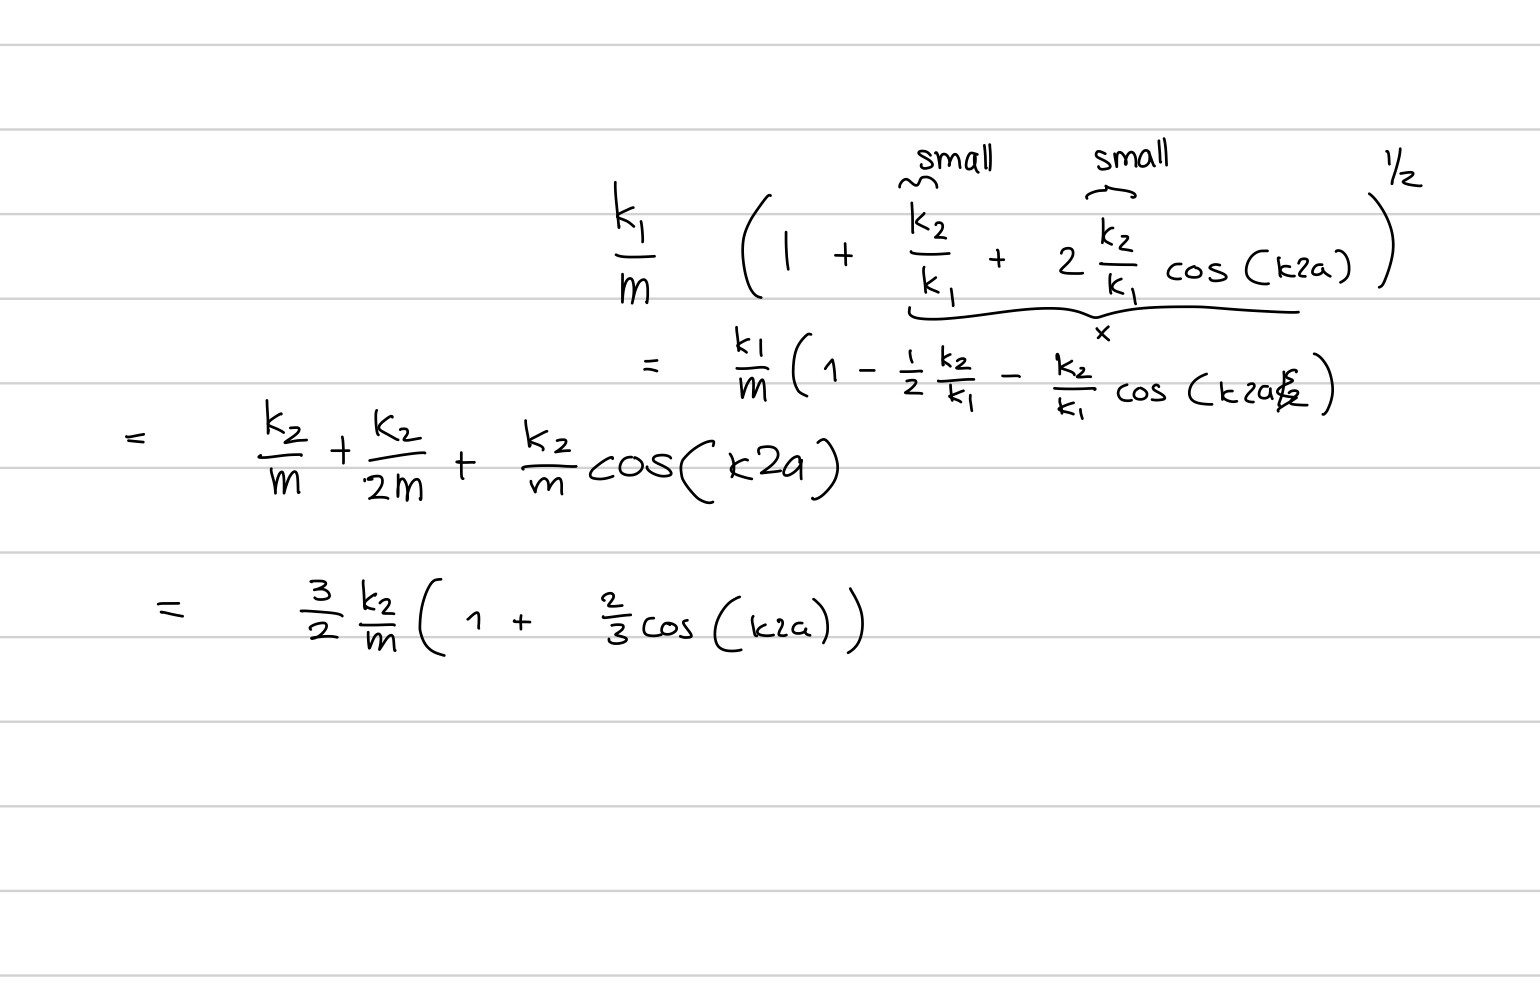 small small
k₁/m (1 + k₂/k₁ + 2 k₂/k₁ cos (k2a))^1/2
x
= k1/m (1 - 1/2 k₂/k₁ - k₂/k₁ cos (k2a))
= k₂/m + k₂/2m + k₂/m cos(k2a)
= 3/2 k₂/m (1 + 2/3 cos (k2a))